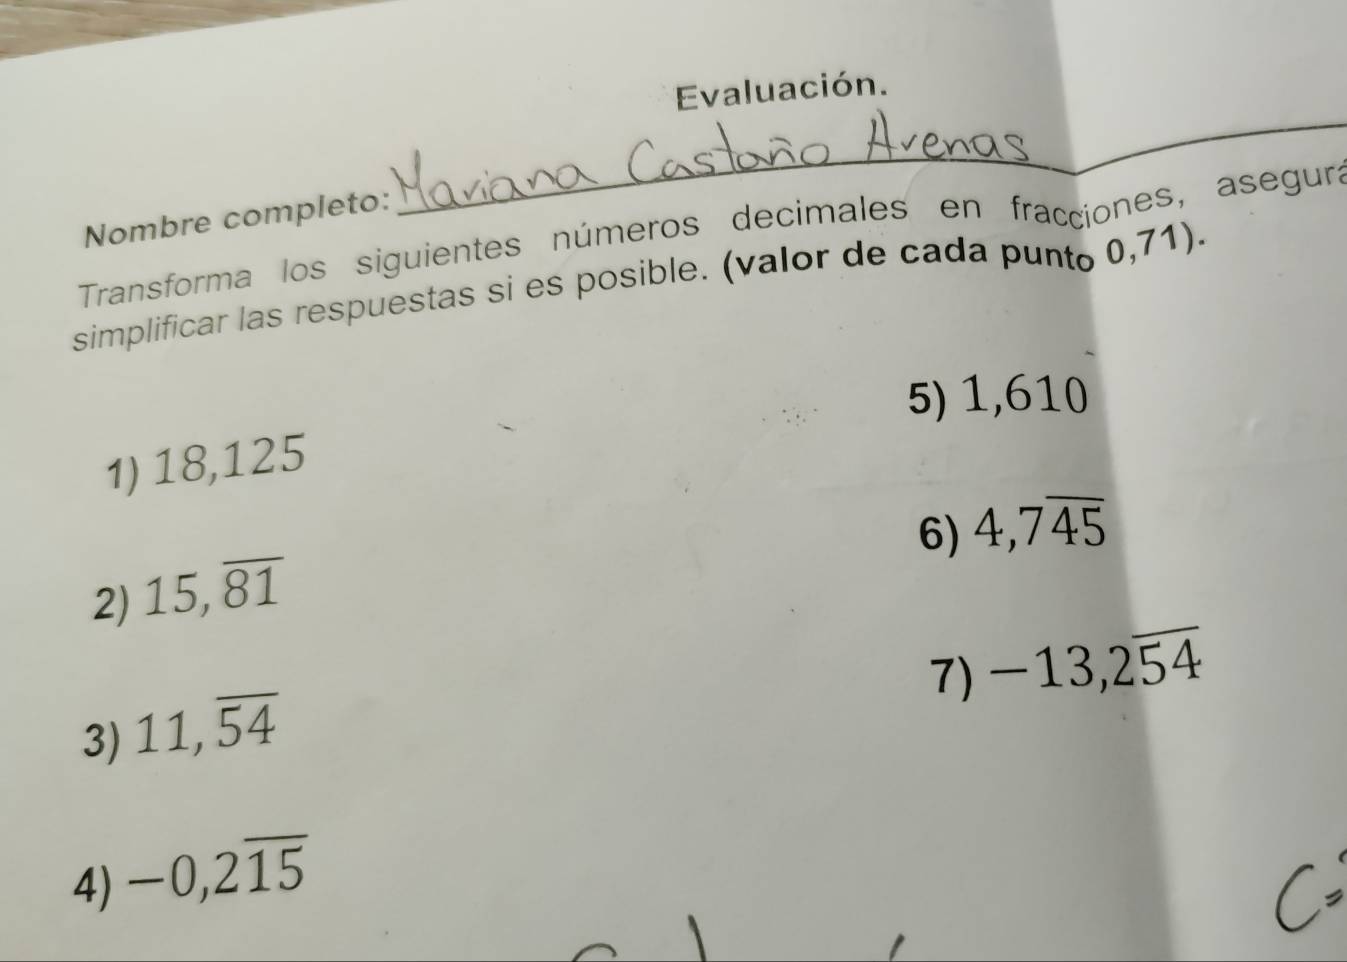 Evaluación.
Nombre completo: Mariana Castaño Arenas
Transforma los siguientes números decimales en fracciones, asegurá
simplificar las respuestas si es posible. (valor de cada punto 0,71).
1) 18,125
2) 15,8̅1̅
3) 11,5̅4̅
4) −0,21̅5̅
5) 1,610
6) 4,74̅5̅
7) −13,25̅4̅
C=